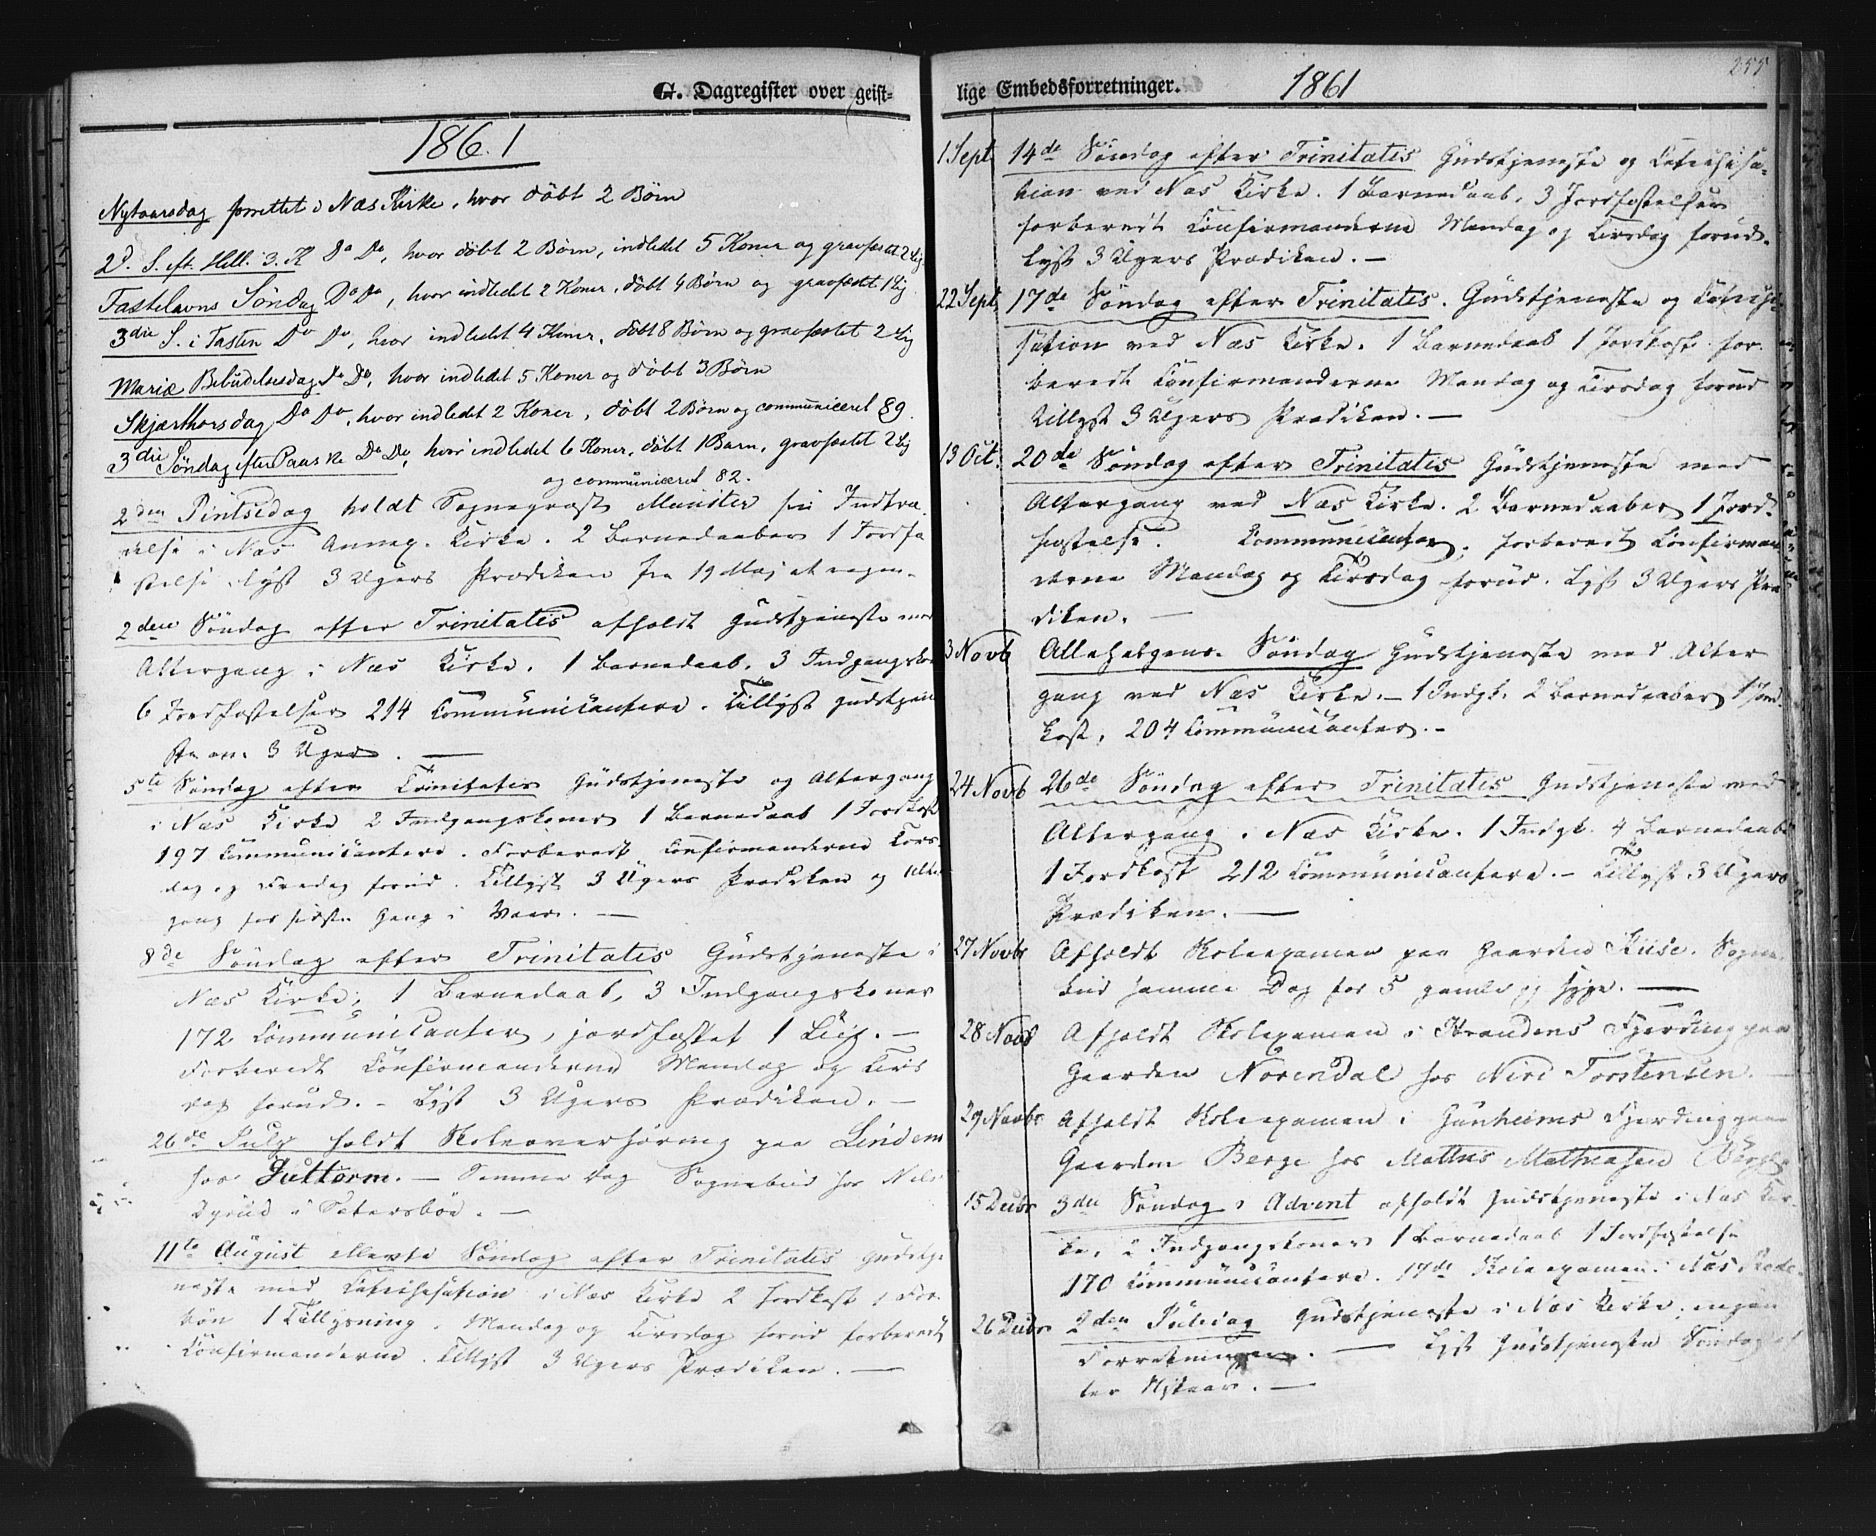 G. Dagregister over geist-
1861
Nytaarsdag forrettet i Næs Kirke, hvor døbt 2 Børn
2d. S. eft. Hell. 3. K Do Do, hvor døbt 2 Børn, indledet 5 Koner og gravfæstet 2 Lig
Fastelavns Søndag Do Do, hvor indledet 2 Koner, døbt 4 Børn og gravfæstet 1 Lig
3die S. i Fasten Do Do, hvor indledet 4 Koner, døbt 8 Børn og gravfæstet 2 Lig
Mariæ Bebudelsesdag Do Do, hvor indledet 5 Koner og døbt 3 Børn
Skjærthorsdag Do Do, hvor indledet 2 Koner, døbt 2 Børn og communiceret 89.
3die Søndag efter Paaske Do Do, hvor indledet 6 Koner, døbt 1 Barn, gravfæstet 2 Lig
og communiceret 82.
2den Pintsedag holdt Sogneprest Münster sin Indtræ-
delse i Næs Annex Kirke. 2 Barnedaaber 1 Jordfæ
stelse. Lyst 3 Ugers Prædiken fra 19 Maj at regne.
2den Søndag efter Trinitatis afholdt Gudstjeneste med
Altergang i Næs Kirke. 1 Barnedaab. 3 Indgangskor
6 Jordfæstelser 214 Communicantere. Tillyst Gudstjene
ste om 3 Uger. —
5te Søndag efter Trinitatis Gudstjeneste og Altergang
i Næs Kirke 2 Indgangskoner 1 Barnedaab 1 Jordkast
197 Communicantere. Forberedt Confirmanderne Tors-
dag og Fredag forud. Tillyst 3 Ugers Prædiken og Alter
gang for sidste Gang i Vaar. —
8de Søndag efter Trinitatis Gudstjeneste i
Næs Kirke, 1 Barnedaab, 3 Indgangskoner
172 Communicanter, jordfæstet 1 Liig. —
Forberedt Confirmanderne Mandag og Tirs
dag forud. – Lyst 3 Ugers Prædiken. —
26de July holdt Skoleoverhøring paa Linden
hos Guttorm. — Samme Dag Sognebud hos Nils
Dyrud i Sætersbøe. —
11te August ellevte Søndag efter Trinitatis Gudstje
neste med Catechisation i Næs Kirke 2 Jordkast 1 For-
bøn 1 Tillysning. Mandag og Tirsdag forud forberedt
Confirmanderne. Tillyst 3 Ugers Prædiken. —
lige Embedsforretninger.
1861
255
1 Sept. 14de Søndag efter Trinitatis Gudstjeneste og Catechisa-
tion ved Næs Kirke. 1 Barnedaab, 3 Jordfæstelser
forberedt Confirmanderne Mandag og Tirsdag forud.
Lyst 3 Ugers Prædiken. —
22 Sept. 17de Søndag efter Trinitatis. Gudstjeneste og Catechi-
sation ved Næs Kirke. 1 Barnedaab 1 Jordkast. for-
beredt Confirmanderne Mandag og Tirsdag forud
Tillyst 3 Ugers Prædiken. —
13 Oct. 20de Søndag efter Trinitatis Gudstjeneste med
Altergang ved Næs Kirke. 2 Barnedaaber 1 Jord-
fæstelse. Communicanter. forberedt Confirman
derne Mandag og Tirsdag forud. Lyst 3 Ugers Præ
diken. —
3 Novb Allehelgens Søndag Gudstjeneste med Alter
gang ved Næs Kirke. – 1 Indgk. 2 Barnedaaber 1 Jord-
kast, 204 Communicanter. –
24 Novb 26de Søndag efter Trinitatis Gudstjeneste med
Altergang i Næs Kirke. 1 Indgk. 4 Barnedaab
1 Jordkast 212 Communicantere. – Tillyst 3 Ugers
Prædiken. —
27 Novbr Afholdt Skoleexamen paa Gaarden Ruse. Sogne-
bud samme Dag for 5 gamle og syge. —
28 Novb Afholdt Skoleexamen i Strandens Fjerding paa
Gaarden Norendal hos Niri Torstensen. —
29 Novbr Afholdt Skoleexamen i Gunheims Fjerding paa
Gaarden Berge hos Mathis Mathiasen Berge.
15 Decbr 3die Søndag i Advent afholdt Gudstjeneste i Næs Kir-
ke, 2 Indgangskoner 1 Barnedaab 1 Jordfæstelse
170 Communicantere. 17de Skoleexamen i Næs
26 Decbr 2den Juledag Gudstjeneste i Næs Kirke, ingen
Forretninger. — Lyst Gudstjeneste Søndag ef
ter Nytaar. —